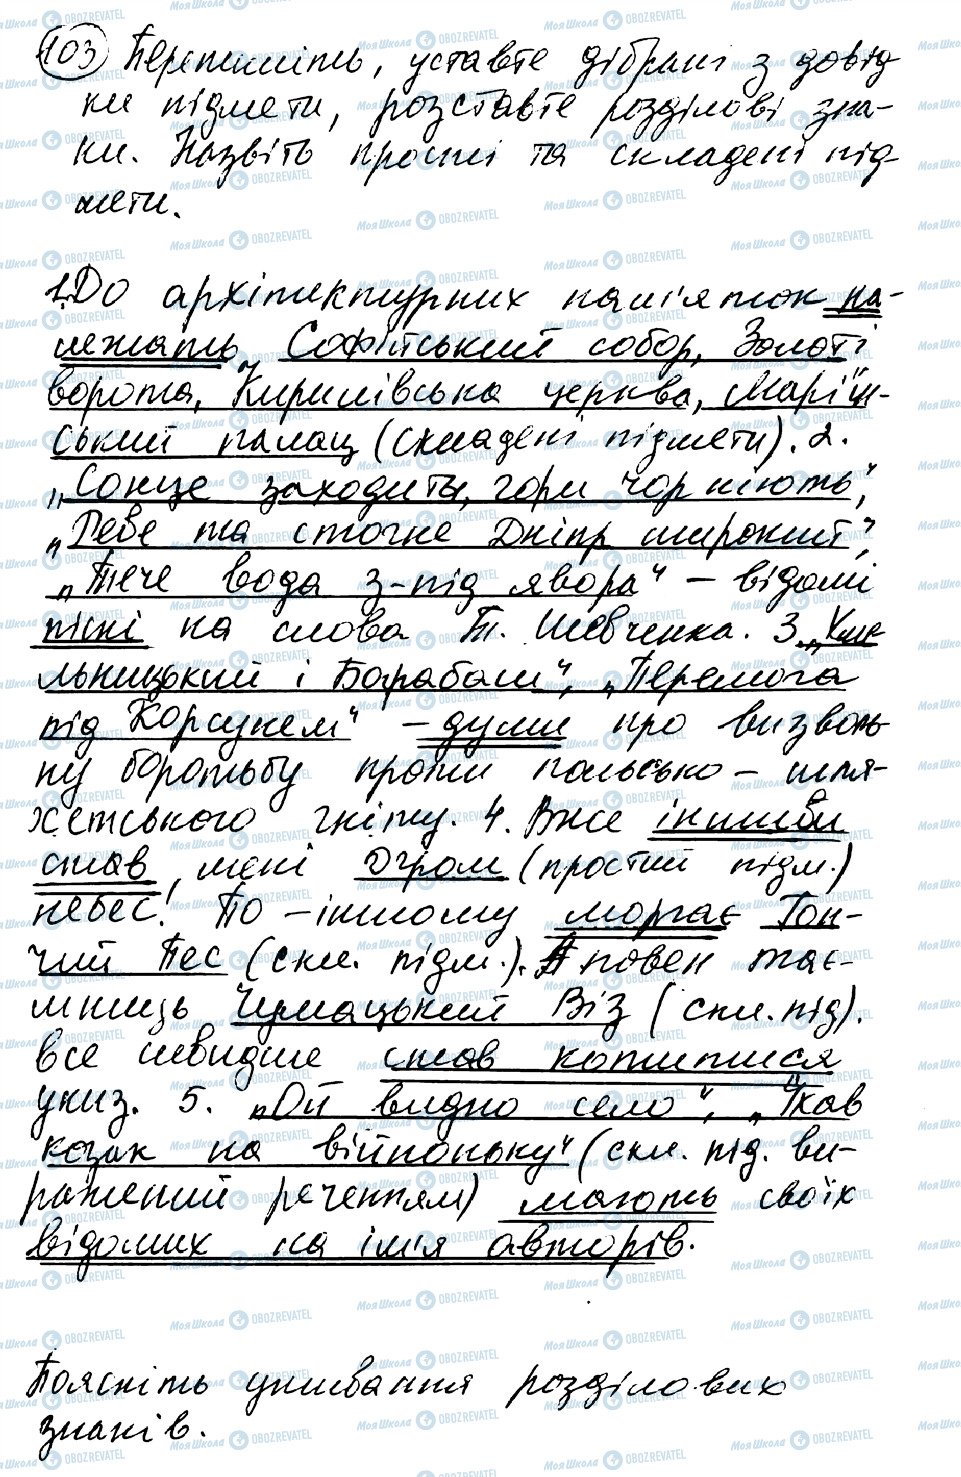 103 Перепишіть, уставте дібрані з довід-
ки підмети, розставте розділові зна-
ки. Назвіть прості та складені під-
мети.
1. До архітектурних пам'яток на-
лежать Софійський собор, Золоті
ворота, Кирилівська церква, Маріїн-
ський палац (складені підмети). 2.
"Сонце заходить, гори чорніють",
"Реве та стогне Дніпр широкий",
"Тече вода з-під явора" – відомі
пісні на слова Т. Шевченка. 3. "Хме-
льницький і Барабаш", "Перемога
під Корсунем" – думи про визволь-
ну боротьбу проти польсько-шля-
хетського гніту. 4. Вже іншим
став мені Огром (простий підм.)
небес! По-іншому моргає Гон-
чий Пес (скл. підм.). А повен таєм-
мниць Чумацький Віз (скл. під).
все швидше став котитися
униз. 5. "Ой видно село", "Їхав
козак на війноньку" (скл. під. ви-
ражений реченням) мають своїх
відомих на ім'я авторів.
Поясніть уживання розділових
знаків.